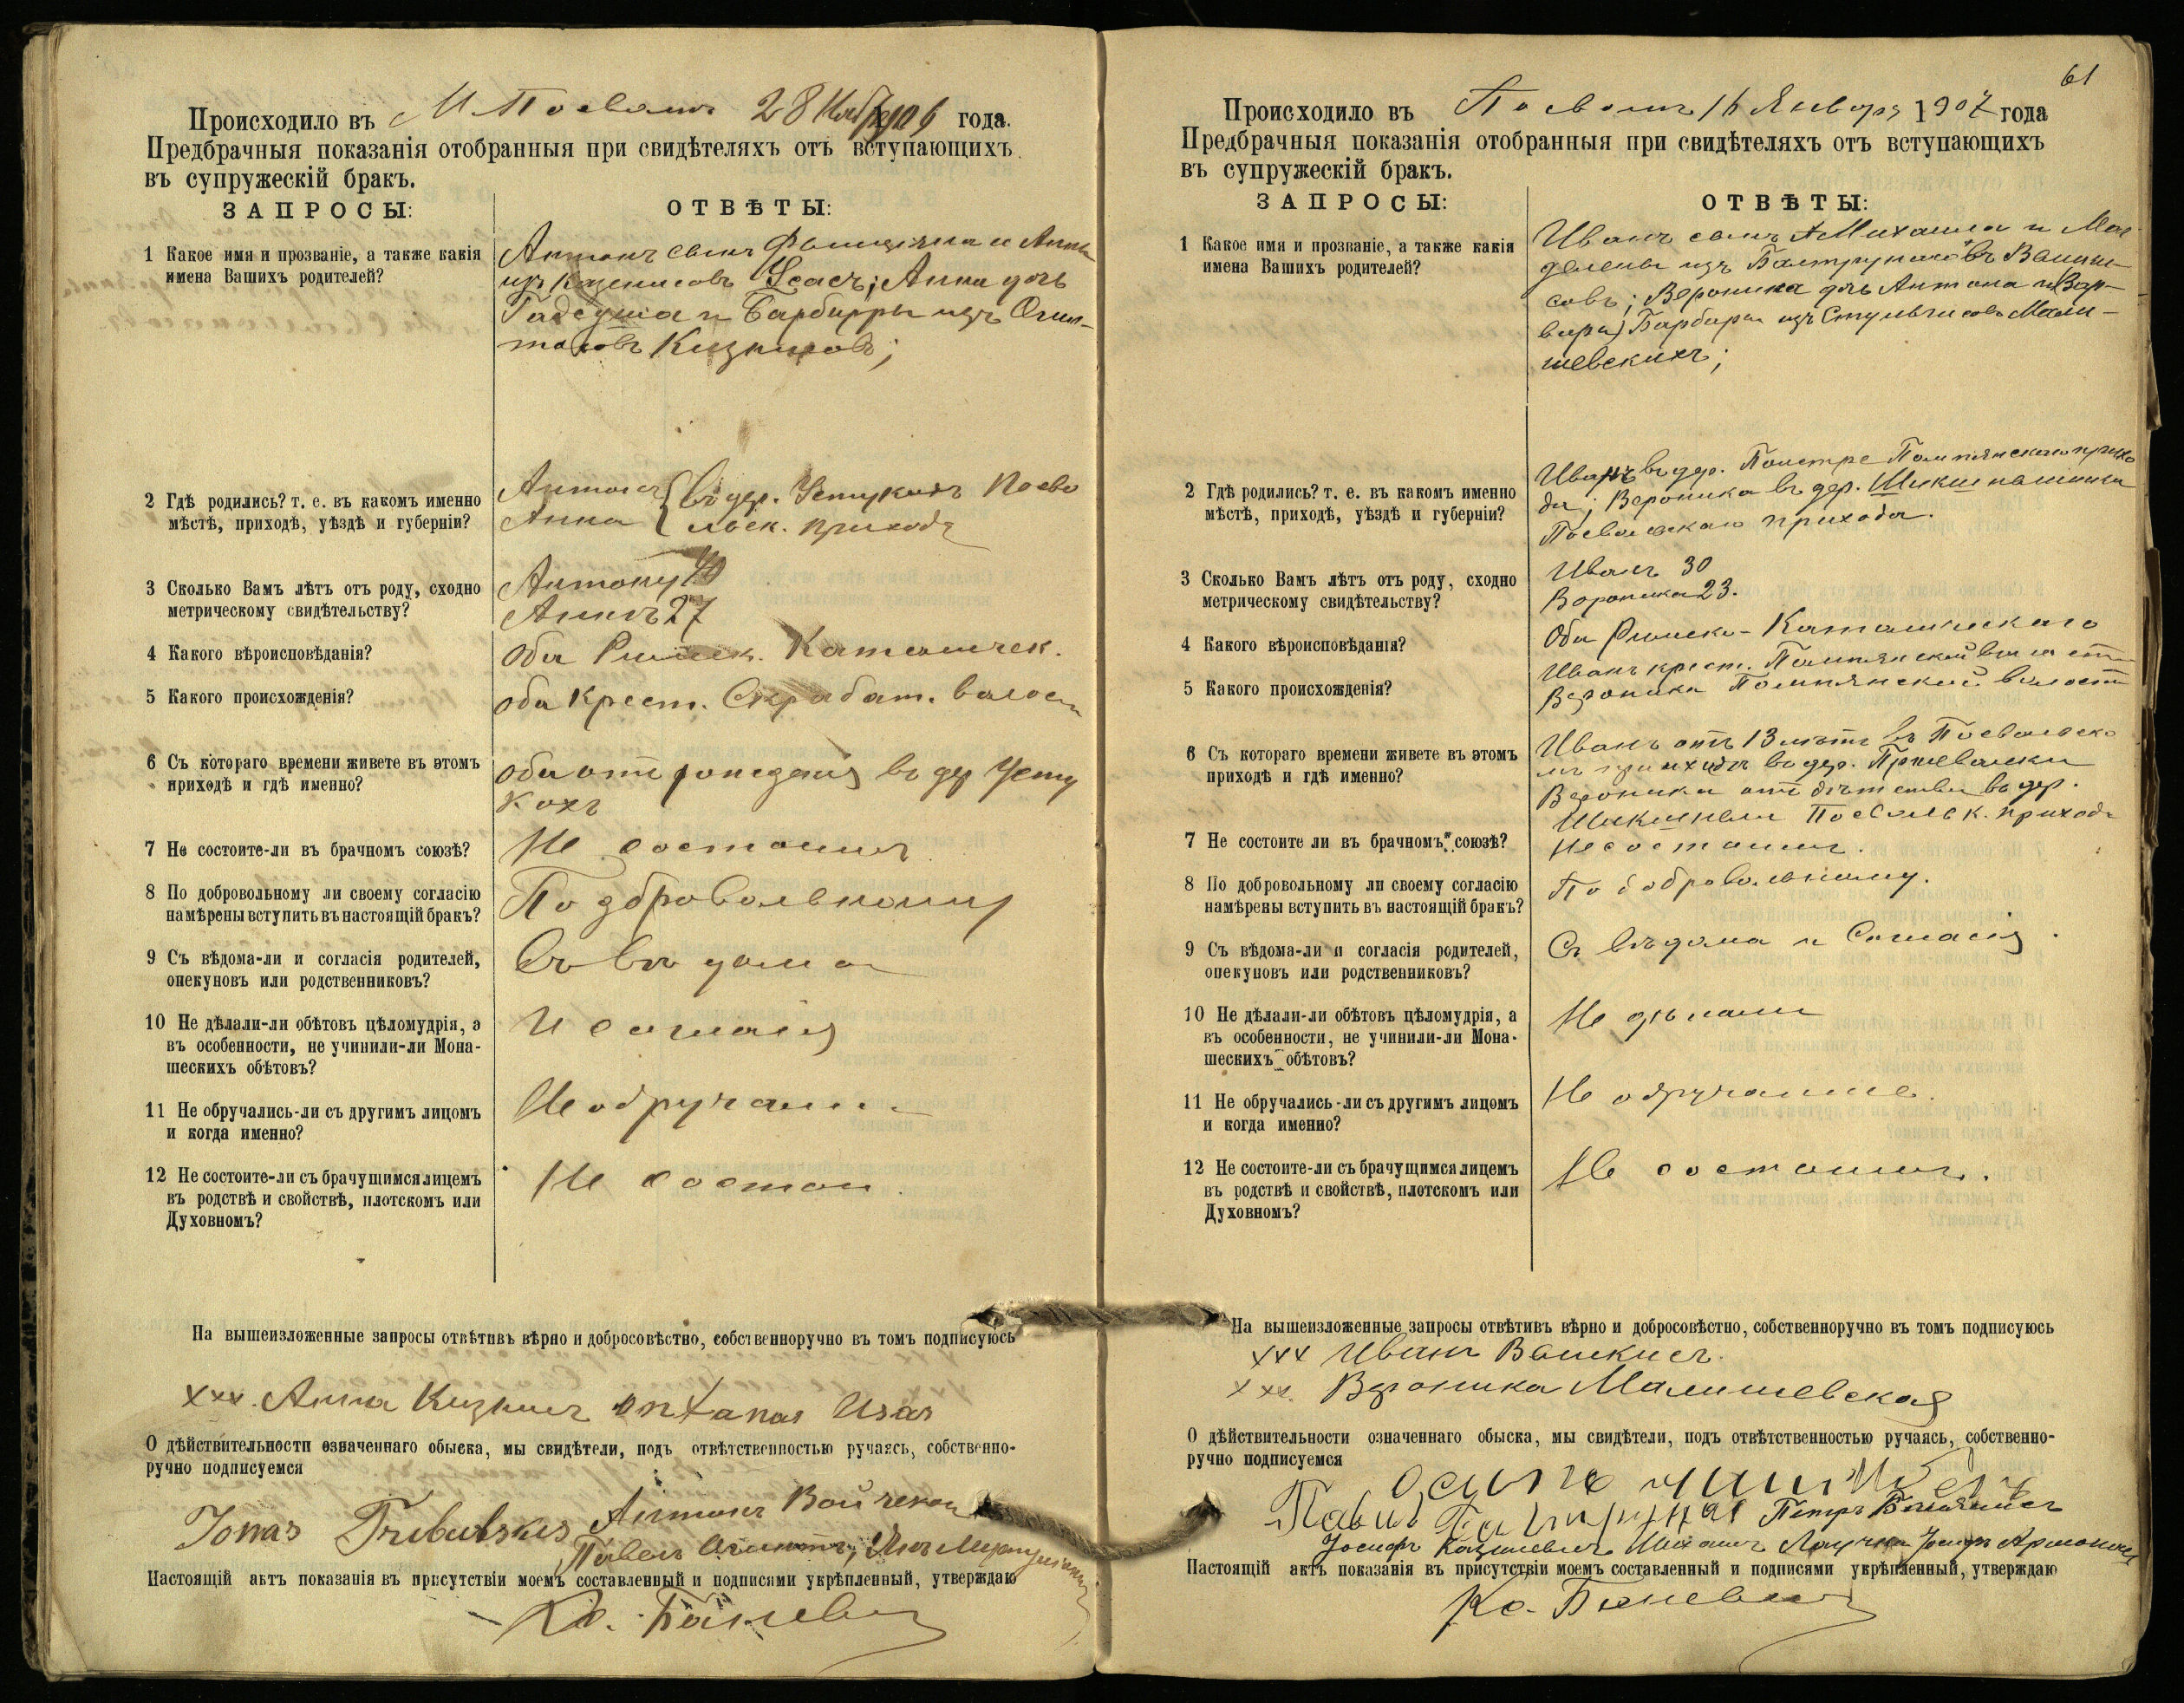 Происходило въ М. Посволь 28 Ноября 1906 года.
Предбрачныя показанія отобранныя при свидѣтеляхъ отъ вступающихъ
въ супружескій бракъ.
ЗАПРОСЫ: ОТВѢТЫ:
1 Какое имя и прозваніе, а также какія
имена Вашихъ родителей?
Антонъ сынъ и Анны
изъ Усасъ; Анна дочь
и Барбары изъ
2 Гдѣ родились? т. е. въ какомъ именно
мѣстѣ, приходѣ, уѣздѣ и губерніи?
Антонъ { въ дер. Устукахъ Посво
Анна { льск. прихода
3 Сколько Вамъ лѣтъ отъ роду, сходно
метрическому свидѣтельству?
Антону 40
Аннѣ 27
4 Какого вѣроисповѣданія?
Оба Римск. Католическ.
5 Какого происхожденія?
оба крест. Скрабат. волости
6 Съ котораго времени живете въ этомъ
приходѣ и гдѣ именно?
оба отъ рожденія въ дер Усту
кахъ
7 Не состоите-ли въ брачномъ союзѣ?
Не состоимъ
8 По добровольному ли своему согласію
намѣрены вступить въ настоящій бракъ?
По добровольному
9 Съ вѣдома-ли и согласія родителей,
опекуновъ или родственниковъ?
Съ вѣдома
10 Не дѣлали-ли обѣтовъ цѣломудрія, а
въ особенности, не учинили-ли Мона-
шескихъ обѣтовъ?
И согласія
11 Не обручались-ли съ другимъ лицомъ
и когда именно?
Не обручали
12 Не состоите-ли съ брачущимся лицемъ
въ родствѣ и свойствѣ, плотскомъ или
Духовномъ?
Не состои
На вышеизложенные запросы отвѣтивъ вѣрно и добросовѣстно, собственноручно въ томъ подписуюсь
xxx. Анна Antanas Usas
О дѣйствительности означеннаго обыска, мы свидѣтели, подъ отвѣтственностью ручаясь, собственно-
ручно подписуемся
Jonas Антонъ
Павелъ
Настоящій актъ показанія въ присутствіи моемъ составленный и подписями укрѣпленный, утверждаю
Кс.
61
Происходило въ Посволь 16 Января 1907 года
Предбрачныя показанія отобранныя при свидѣтеляхъ отъ вступающихъ
въ супружескій бракъ.
ЗАПРОСЫ: ОТВѢТЫ:
1 Какое имя и прозваніе, а также какія
имена Вашихъ родителей?
Иванъ сынъ Михаила и Маг-
далены изъ
Вероника дочь Антона и Вар-
вары) Барбары изъ Мали-
шевскихъ;
2 Гдѣ родились? т. е. въ какомъ именно
мѣстѣ, приходѣ, уѣздѣ и губерніи?
Иванъ въ дер. Помпянскаго прихо
да; Вероника въ дер.
Посвольскаго прихода.
3 Сколько Вамъ лѣтъ отъ роду, сходно
метрическому свидѣтельству?
Иванъ 30
Вероника 23.
4 Какого вѣроисповѣданія?
Оба Римско-Католическаго
5 Какого происхожденія?
Иванъ крест. Помпянской волости
Вероника Помпянской волости
6 Съ котораго времени живете въ этомъ
приходѣ и гдѣ именно?
Иванъ отъ 13 лѣтъ въ Посвольско
мъ приходѣ въ дер.
Вероника отъ дѣтства въ дер.
Посвольск. прихода
7 Не состоите ли въ брачномъ союзѣ?
Не состоимъ.
8 По добровольному ли своему согласію
намѣрены вступить въ настоящій бракъ?
По добровольному.
9 Съ вѣдома-ли и согласія родителей,
опекуновъ или родственниковъ?
Съ вѣдома и Согласія.
10 Не дѣлали-ли обѣтовъ цѣломудрія, а
въ особенности, не учинили-ли Мона-
шескихъ обѣтовъ?
Не дѣлали
11 Не обручались-ли съ другимъ лицомъ
и когда именно?
Не обручались.
12 Не состоите-ли съ брачущимся лицемъ
въ родствѣ и свойствѣ, плотскомъ или
Духовномъ?
Не состоимъ.
На вышеизложенные запросы отвѣтивъ вѣрно и добросовѣстно, собственноручно въ томъ подписуюсь
xxx Иванъ
xxx. Вероника Малишевская
О дѣйствительности означеннаго обыска, мы свидѣтели, подъ отвѣтственностью ручаясь, собственно-
ручно подписуемся
Петръ
Іосифъ Іосифъ
Настоящій актъ показанія въ присутствіи моемъ составленный и подписями укрѣпленный, утверждаю
Кс.